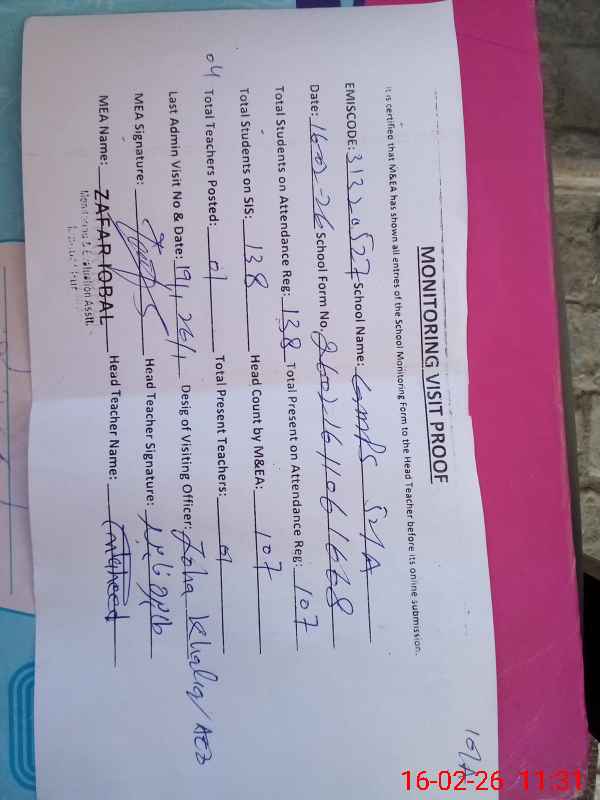 107A
MONITORING VISIT PROOF
It is certified that M&EA has shown all entries of the School Monitoring Form to the Head Teacher before its online submission.
EMISCODE: 31320527 School Name: Gmps 52/A
Date: 16-02-26 School Form No.
Total Students on Attendance Reg: 138 Total Present on Attendance Reg: 107
Total Students on SIS: 138 Head Count by M&EA: 107
04 Total Teachers Posted: 01 Total Present Teachers: 01
Last Admin Visit No & Date: 19/1 26/1 Desig of Visiting Officer: Zoha Khaliq/AEO
MEA Signature: Head Teacher Signature:
MEA Name: ZAFAR IQBAL Head Teacher Name:
Monitoring & Evaluation Asstt.
16-02-26 11:31